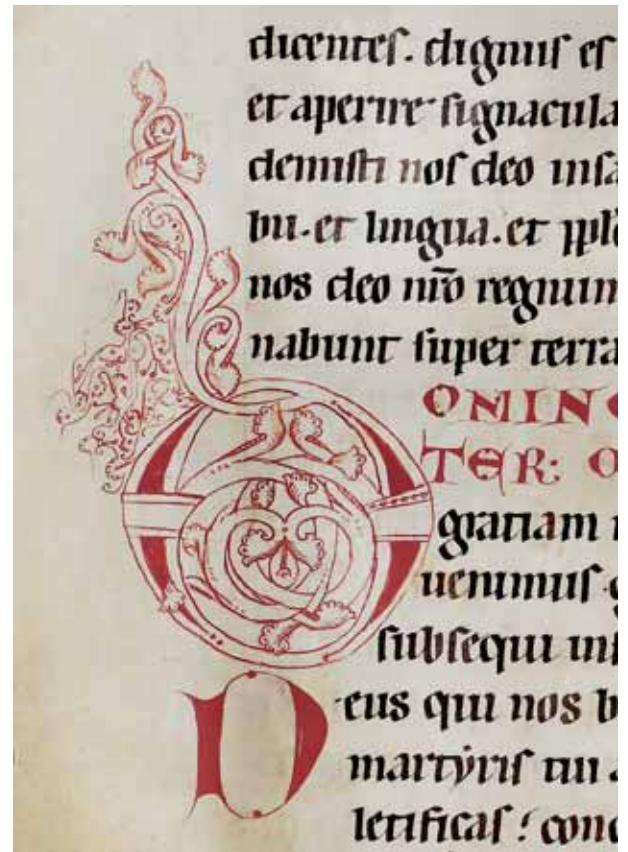 dicentes. dignus es
et aperire signacula
demisti nos deo in sa
bu. et lingua. et pplo
nos deo nr̄o regnum
nabunt super terra
DOMINE
TER: O
gratiam
uenimus
subsequi
Deus qui nos b
martẏris tui a
letificas! conc